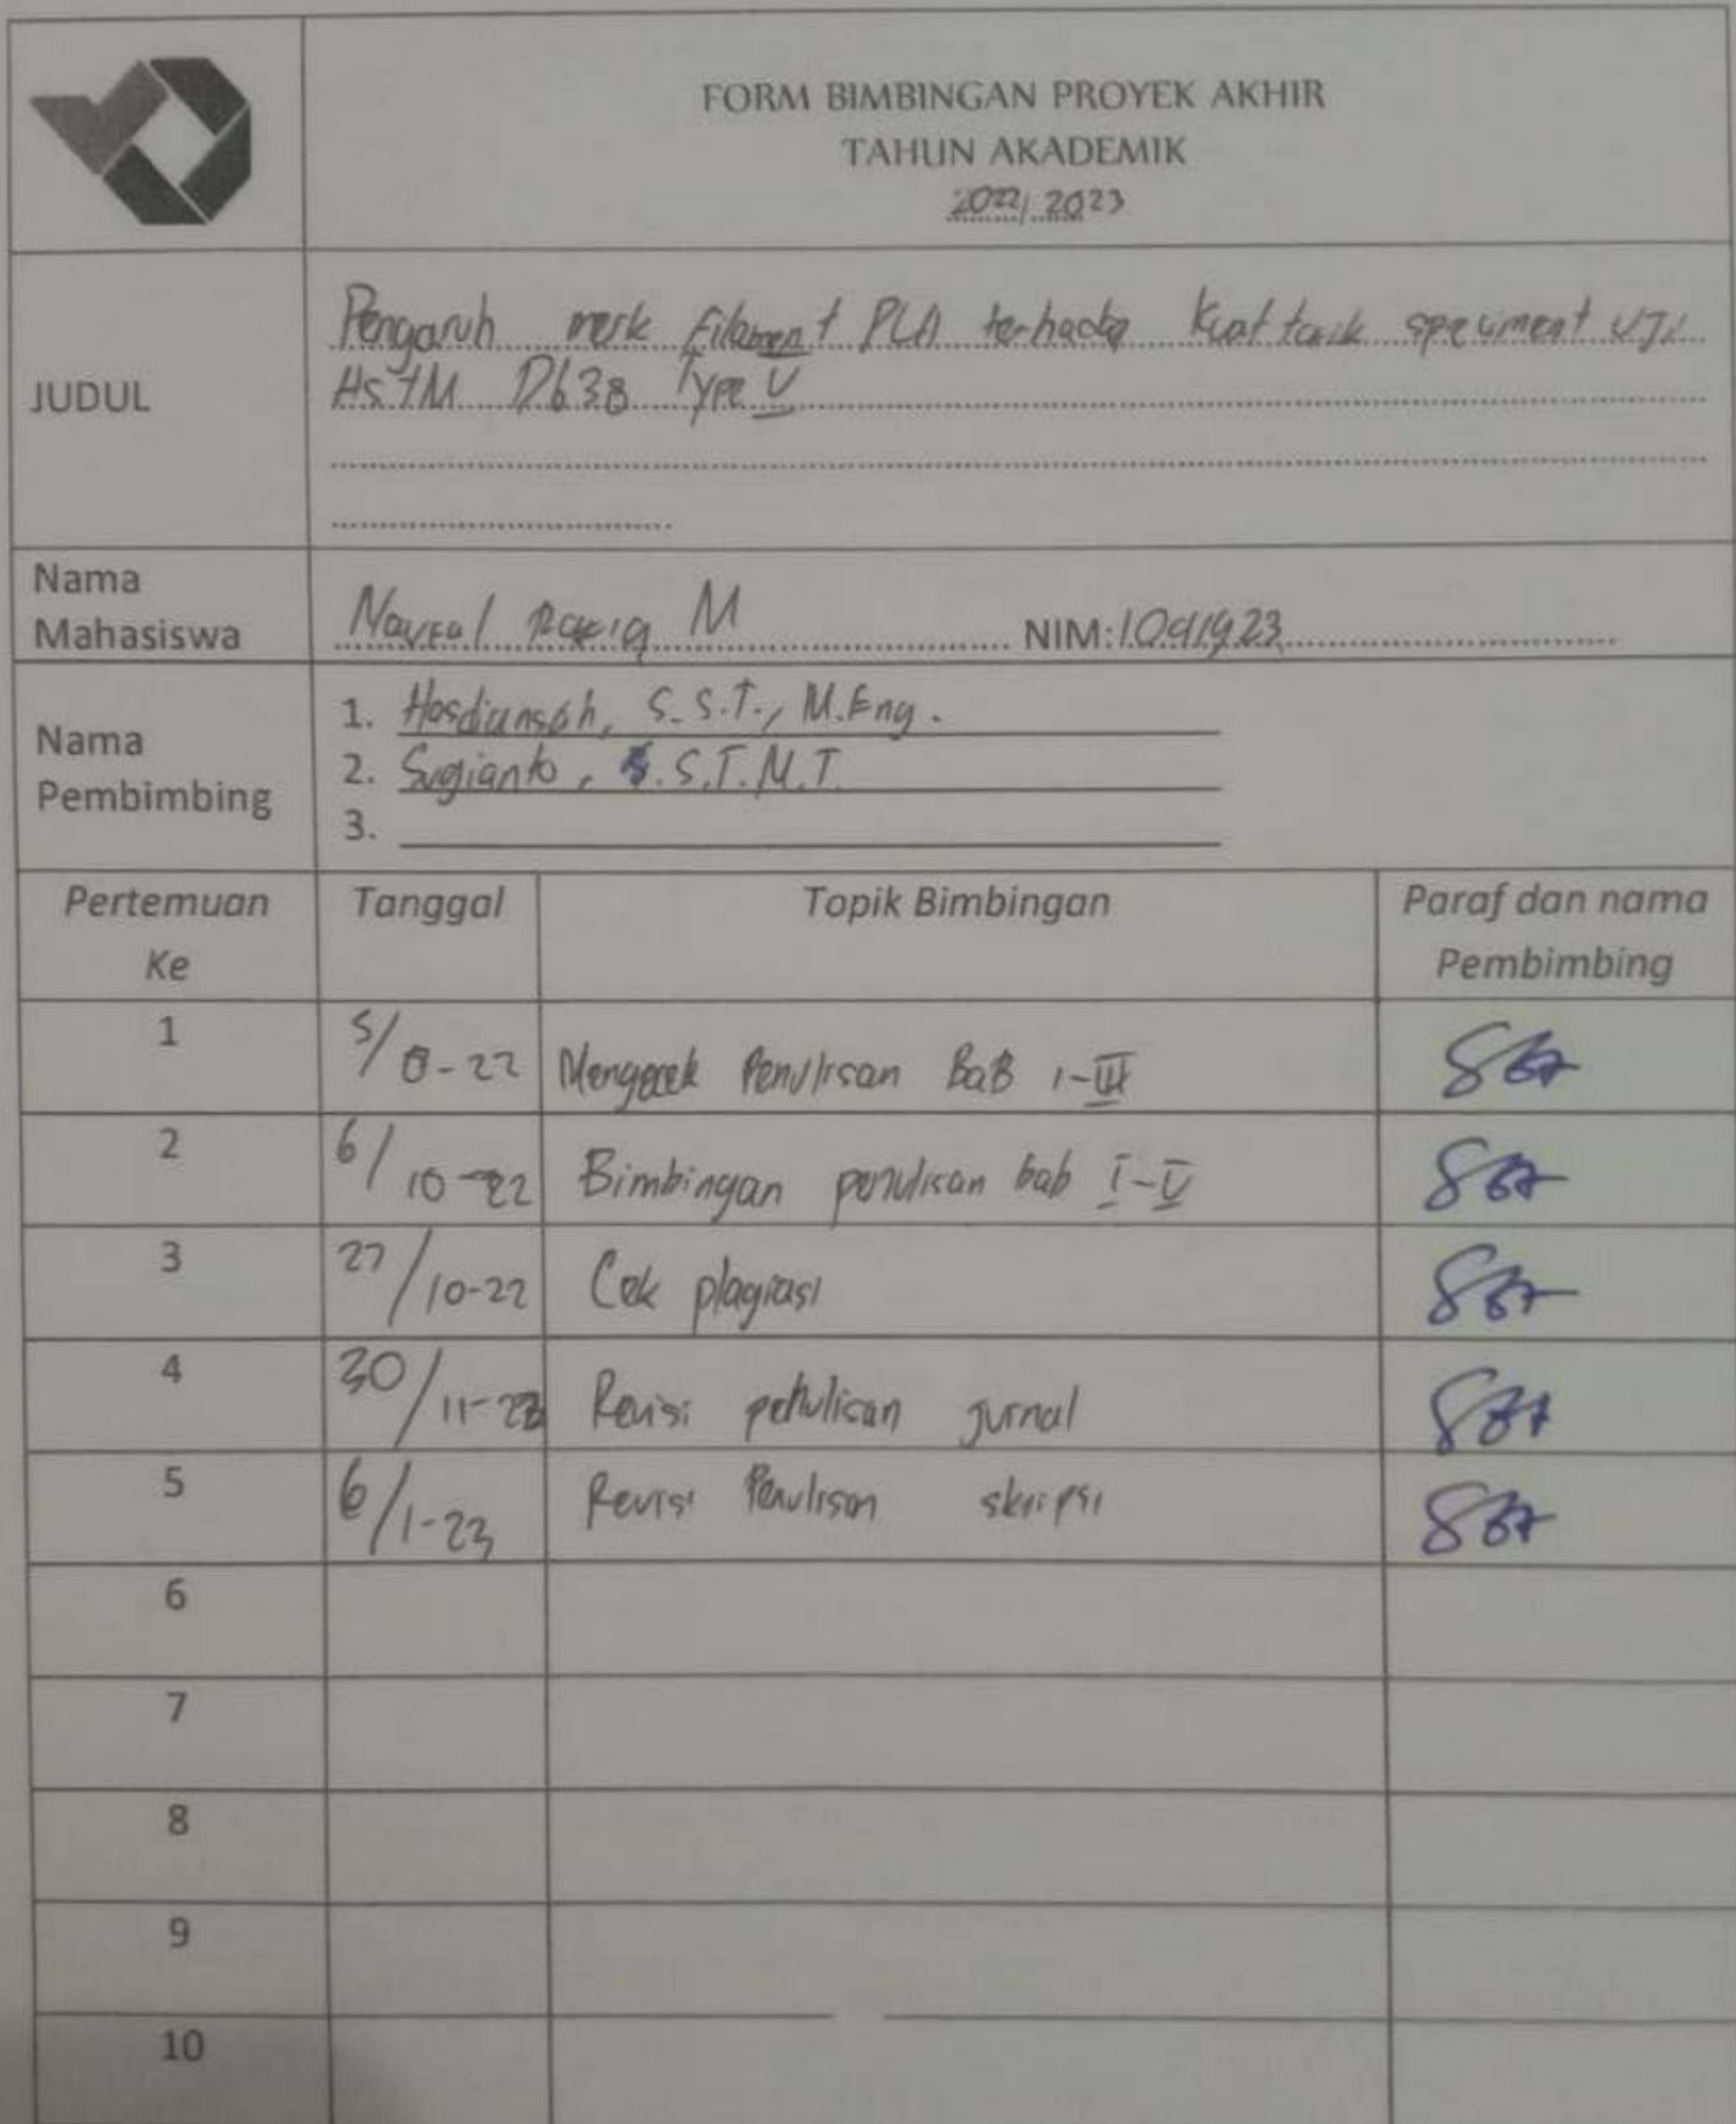 FORM BIMBINGAN PROYEK AKHIR
TAHUN AKADEMIK
2022/2023
JUDUL
Pengaruh merk Filament PLA terhadap Kuat tarik speciment UJI
ASTM D638 Type V
Nama Mahasiswa
M NIM: 1041923
Nama Pembimbing
1. Hasdiansah, S.S.T., M.Eng.
2. Sugianto, S.S.T. M.T.
3.
Pertemuan Ke Tanggal Topik Bimbingan Paraf dan nama Pembimbing
1 5/ -22 Mengecek Penulisan BaB I-III
2 6/10-22 Bimbingan penulisan bab I-V
3 27/10-22 Cek plagiasi
4 30/11-22 Revisi penulisan jurnal
5 6/1-23 Revisi Penulisan skripsi
6
7
8
9
10